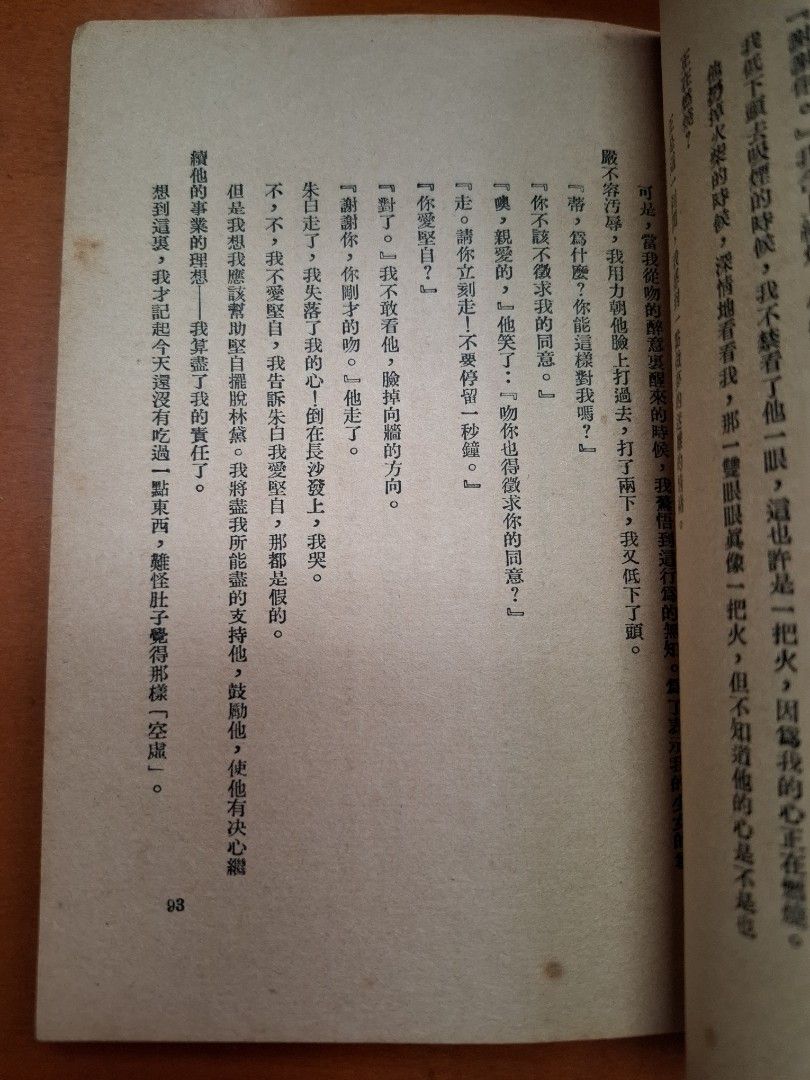 我低下頭去
我不禁看了他一眼,這也許是一把火,因爲我的心正在
深情地看看我,那一雙眼眼眞像一把火,但不知道他的心是不是也
正在燃燒?
可是,當我從吻的醉意裏醒來的時候,我
嚴不容汚辱,我用力朝他臉上打過去,打了兩下,我又低下了頭。
『蒂,爲什麽?你能這樣對我嗎?』
『你不該不徵求我的同意。』
『噢,親愛的,』他笑了:『吻你也得徵求你的同意?』
『走。請你立刻走!不要停留一秒鐘。』
『你愛堅自?』
『對了。』我不敢看他,臉掉向牆的方向。
『謝謝你,你剛才的吻。』他走了。
朱白走了,我失落了我的心!倒在長沙發上,我哭。
不,不,我不愛堅自,我告訴朱白我愛堅自,那都是假的。
但是我想我應該幫助堅自擺脫林黛。我將盡我所能盡的支持他,鼓勵他,使他有决心繼
續他的事業的理想——我算盡了我的責任了。
想到這裏,我才記起今天還沒有吃過一點東西,難怪肚子覺得那樣「空虛」。
93